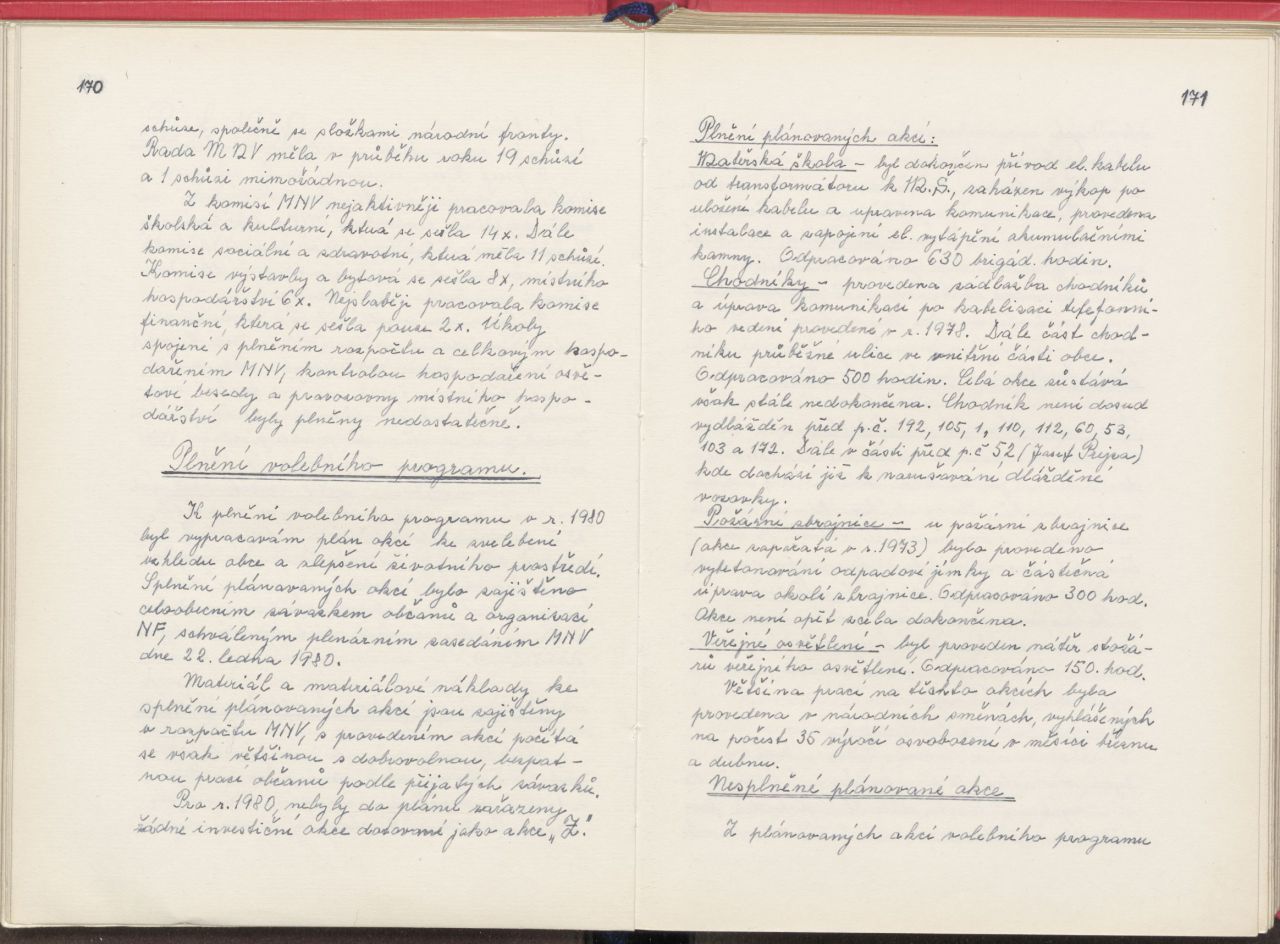 170
schůze, společně se složkami národní fronty.
Rada MNV měla v průběhu roku 19 schůzí
a 1 schůzi mimořádnou.
Z komisí MNV nejaktivněji pracovala komise
školská a kulturní, která se sešla 14x. Dále
komise sociální a zdravotní, která měla 11 schůzí.
Komise výstavby a bytová se sešla 8x, místního
hospodářství 6x. Nejslaběji pracovala komise
finanční, která se sešla pouze 2x. Úkoly
spojené s plněním rozpočtu a celkovým hospo-
dařením MNV, kontrolou hospodaření osvě-
tové besedy a provozovny místního hospo-
dářství byly plněny nedostatečně.
Plnění volebního programu.
K plnění volebního programu v r. 1980
byl vypracovám plán akcí ke zvelebení
vzhledu obce a zlepšení životního prostředí.
Splnění plánovaných akcí bylo zajištěno
celoobecním závazkem občanů a organizací
NF, schváleným plenárním zasedáním MNV
dne 22. ledna 1980.
Materiál a materiálové náklady ke
splnění plánovaných akcí jsou zajištěny
v rozpočtu MNV, s provedením akcí počítá
se však většinou s dobrovolnou, bezpat-
nou prací občanů podle přijatých závazků.
Pro r. 1980, nebyly do plánu zařazeny
žádné investiční akce dotované jako akce „Z."
171
Plnění plánovaných akcí:
Mateřská škola - byl dokončen přívod el. kabelu
od transformátoru k M.Š., zaházen výkop po
uložení kabelu a upravena komunikace, provedena
instalace a zapojení el. vytápění akumulačními
kamny. Odpracováno 630 brigád. hodin.
Chodníky - provedena zádlažba chodníků
a úprava komunikací po kabelizaci telefonní-
ho vedení provedení v r. 1978. Dále část chod-
níku průběžné ulice ve vnitřní části obce.
Odpracováno 500 hodin. Celá akce zůstává
však stále nedokončena. Chodník není dosud
vydlážděn před p.č. 192, 105, 1, 110, 112, 60, 53,
103 a 172. Dále v části před p.č 52 (Josef Prejza)
kde dochází již k narušování dlážděné
vozovky.
Požární zbrojnice - u požární zbrojnice
(akce započatá v r. 1973) bylo provedeno
vybetonování odpadové jímky a částečná
úprava okolí zbrojnice. Odpracováno 300 hod.
Akce není opět zcela dokončena.
Veřejné osvětlení - byl proveden nátěr stožá-
rů veřejného osvětlení. Odpracováno 150. hod.
Většina prací na těchto akcích byla
provedena v národních směnách, vyhlášených
na počest 35 výročí osvobození v měsíci březnu
a dubnu.
Nesplněné plánované akce
Z plánovaných akcí volebního programu